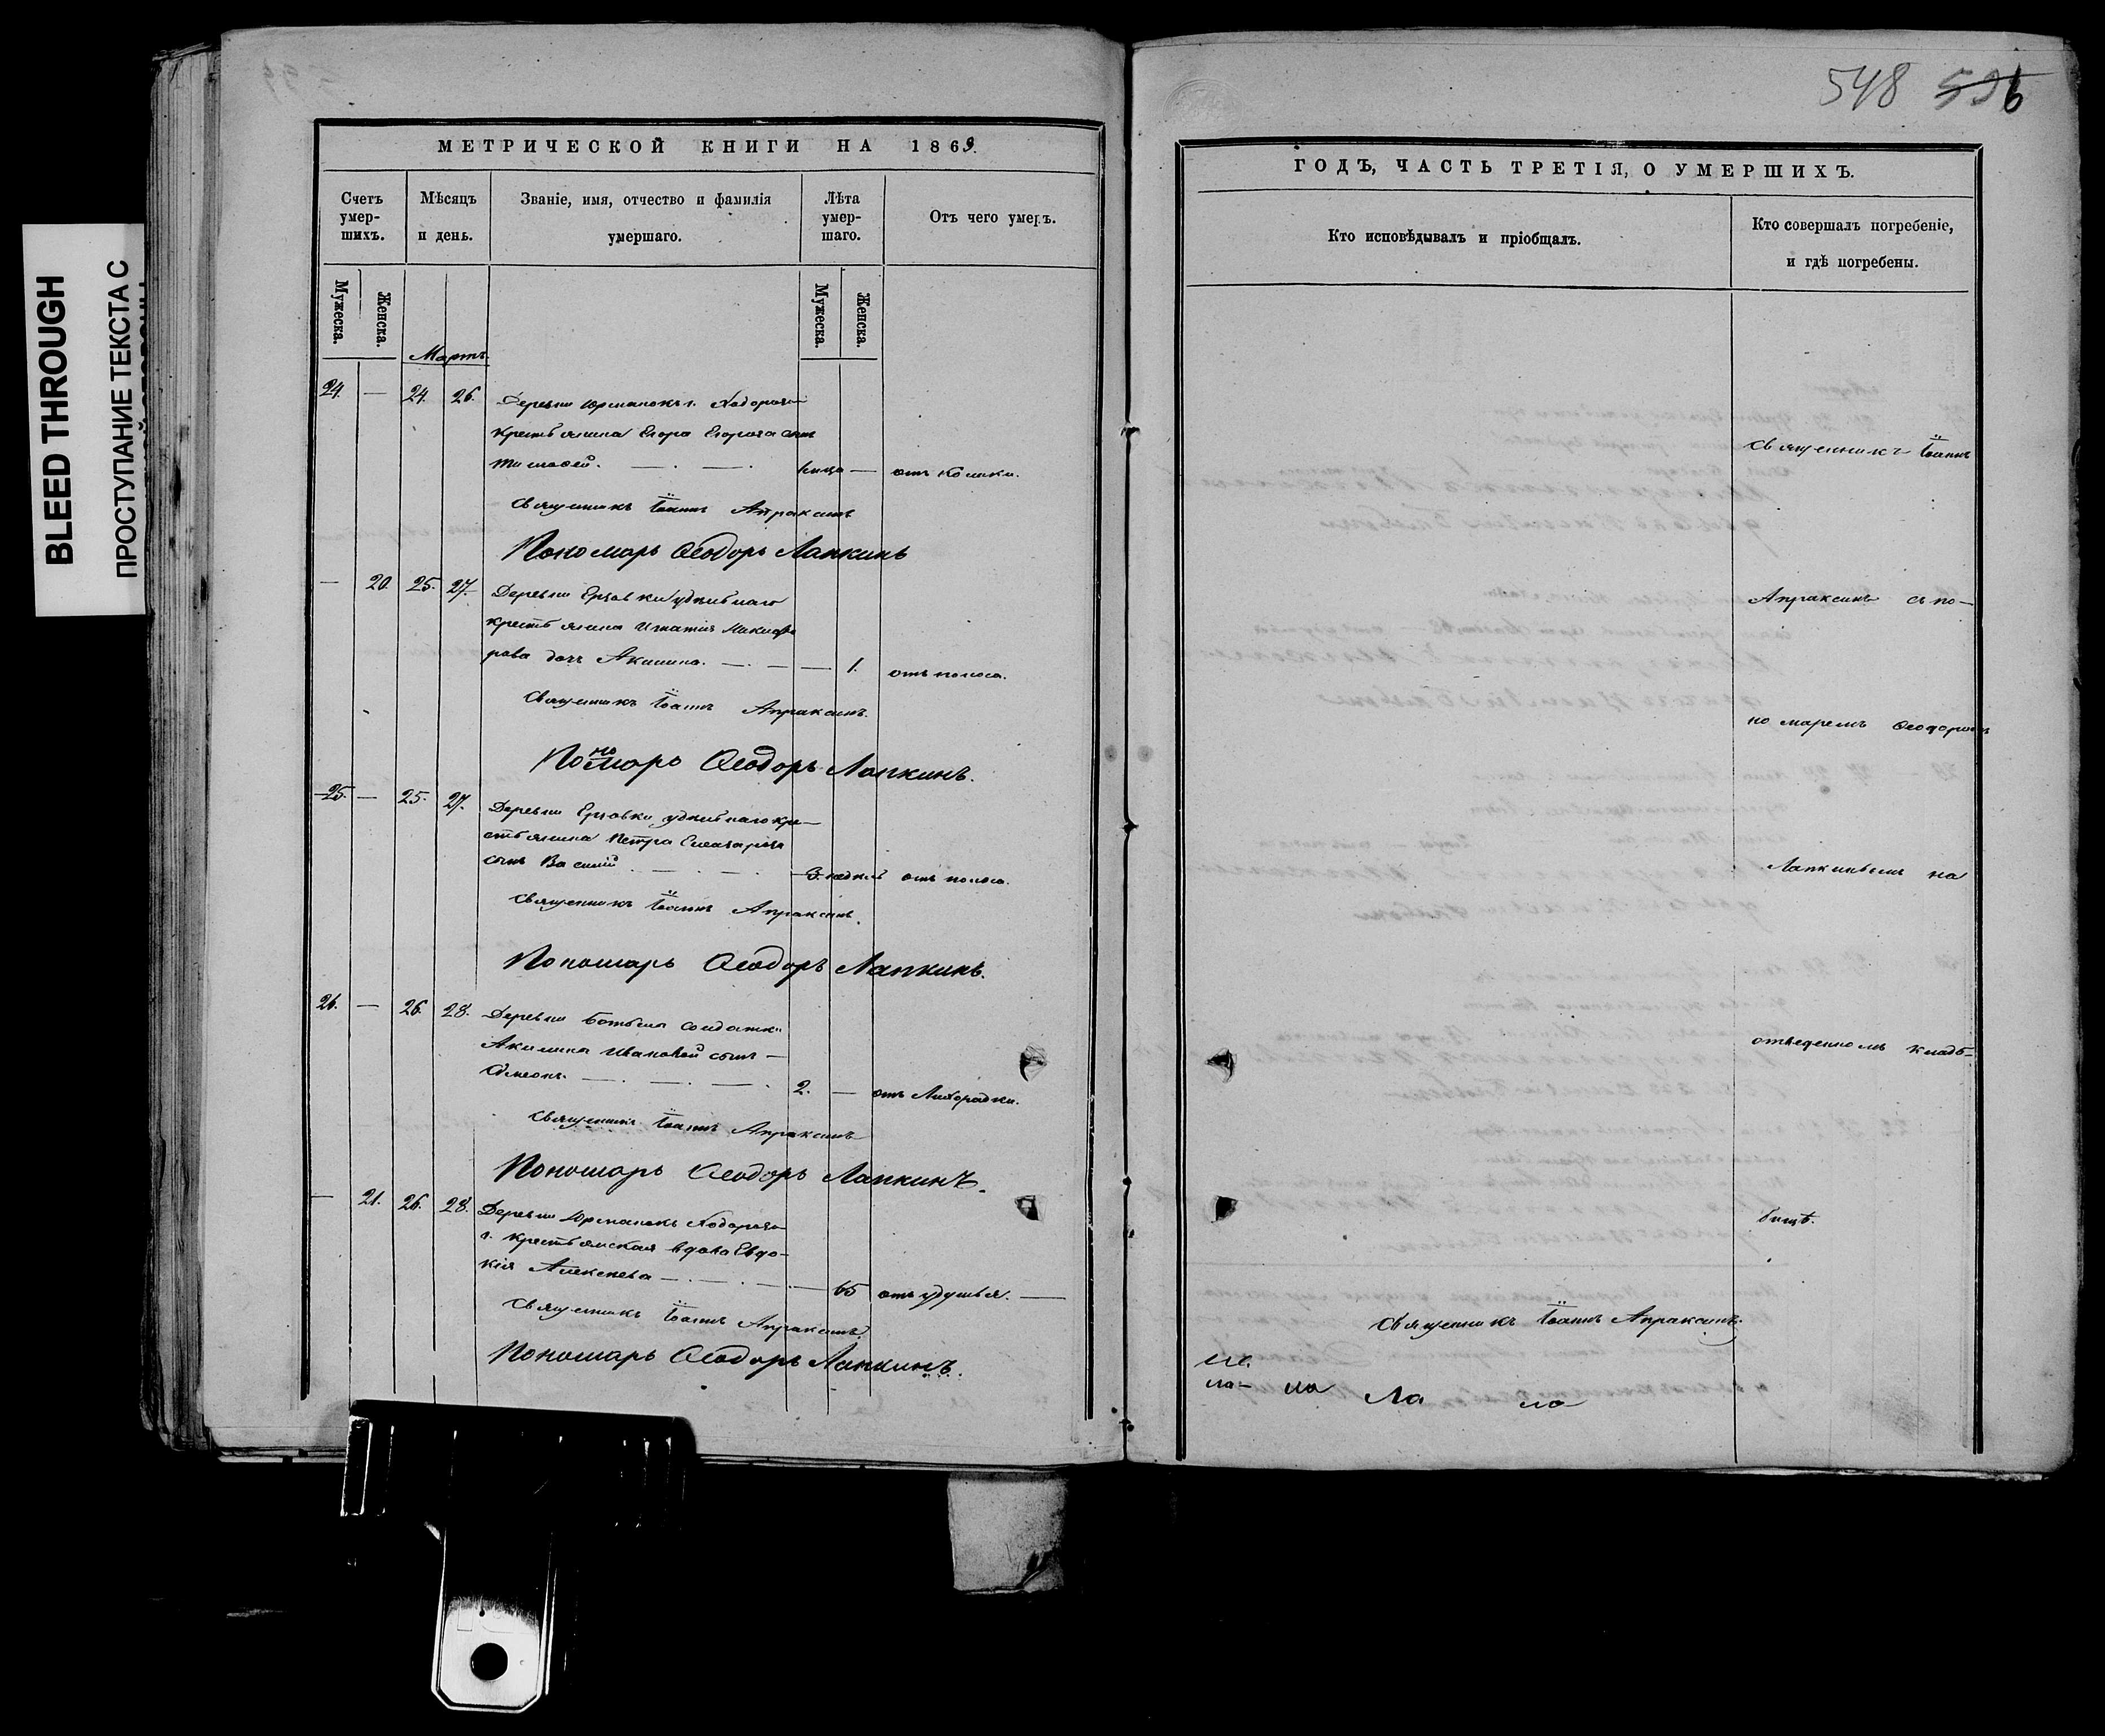 BLEED THROUGH
ПРОСТУПАНИЕ ТЕКСТА С
548 596
МЕТРИЧЕСКОЙ КНИГИ НА 1869.
Счетъ умер-шихъ.
Мѣсяцъ и день.
Званіе, имя, отчество и фамилія умершаго.
Лѣта умер-шаго.
Отъ чего умеръ.
Мужеска.
Женска.
Мужеска.
Женска.
Мартъ.
24. — 24. 26. Деревни
крестьянина Егора Егорова сынъ
— . — . — отъ колики.
Священникъ Іоаннъ Апраксинъ
Пономарь Ѳеодоръ Лапкинъ
— 20. 25. 27. Деревни Ерзовки удѣльнаго
крестьянина Игнатія Никифо
рова дочь Акилина. — . — — 1. отъ поноса.
Священникъ Іоаннъ Апраксинъ.
Пономарь Ѳеодоръ Лапкинъ.
25. — 25. 27. Деревни Ерзовки удѣльнаго кре-
стьянина Петра Елеазарова
сынъ Василій . — . — 3. недѣль отъ поноса.
Священникъ Іоаннъ Апраксинъ.
Пономарь Ѳеодоръ Лапкинъ.
26. — 26. 28. Деревни солдатки
Акилины Ивановой сынъ —
Симеонъ. — . — . — . 2. — отъ Лихорадки.
Священникъ Іоаннъ Апраксинъ
Пономарь Ѳеодоръ Лапкинъ.
— 21. 26. 28. Деревни
г. крестьянская вдова Евдо-
кія Алексѣева — . — . — — 65 отъ удушья. —
Священникъ Іоаннъ Апраксинъ.
Пономарь Ѳеодоръ Лапкинъ.
ГОДЪ, ЧАСТЬ ТРЕТІЯ, О УМЕРШИХЪ.
Кто исповѣдывалъ и пріобщалъ.
Кто совершалъ погребеніе, и гдѣ погребены.
Священникъ Іоаннъ
Апраксинъ съ по-
номаремъ Ѳеодоромъ
Лапкинымъ на
отведенномъ кладб-
бищѣ.
Священникъ Іоаннъ Апраксинъ.
ла- ла Ла ла